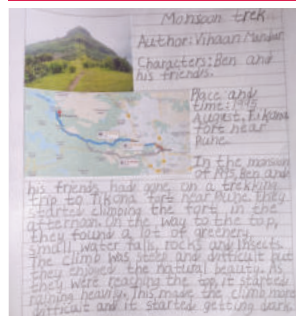 Monsoon trek
Author: Vihaan Mandar
Characters: Ben and
his friends.
Place and
time: 1975
August, Tikona
fort near
Pune.
In the monsoon
of 1975, Ben and
his friends had gone on a trekking
trip to Tikona fort near Pune. they
started climbing the fort in the
afternoon. On the way to the top,
they found a lot of greenery,
small water falls, rocks and insects.
The climb was steep and difficult but
they enjoyed the natural beauty. As
they were reaching the top, it started
raining heavily. This made the climb more
difficult and it started getting dark.